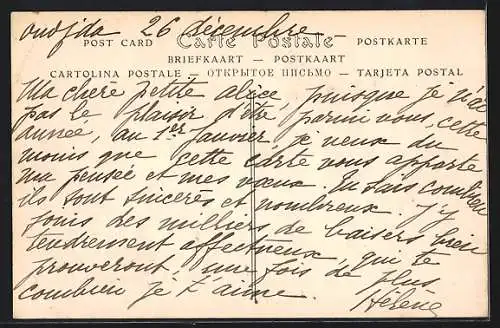 oudjda 26 décembre
POST CARD Carte Postale POSTKARTE
BRIEFKAART — POSTKAART
CARTOLINA POSTALE — ОТКРЫТОЕ ПИСЬМО — TARJETA POSTAL
Ma chère petite alice, puisque je n'ai
pas le plaisir d'être parmi vous, cette
année, au 1er Janvier, je veux du
moins que cette carte vous apporte
ma pensée et mes vœux. Tu sais combien
ils sont sincères et nombreux. J'y
joins des milliers de baisers bien
tendrement affectueux, qui te
prouveront, une fois de plus
combien je t'aime. Hélène